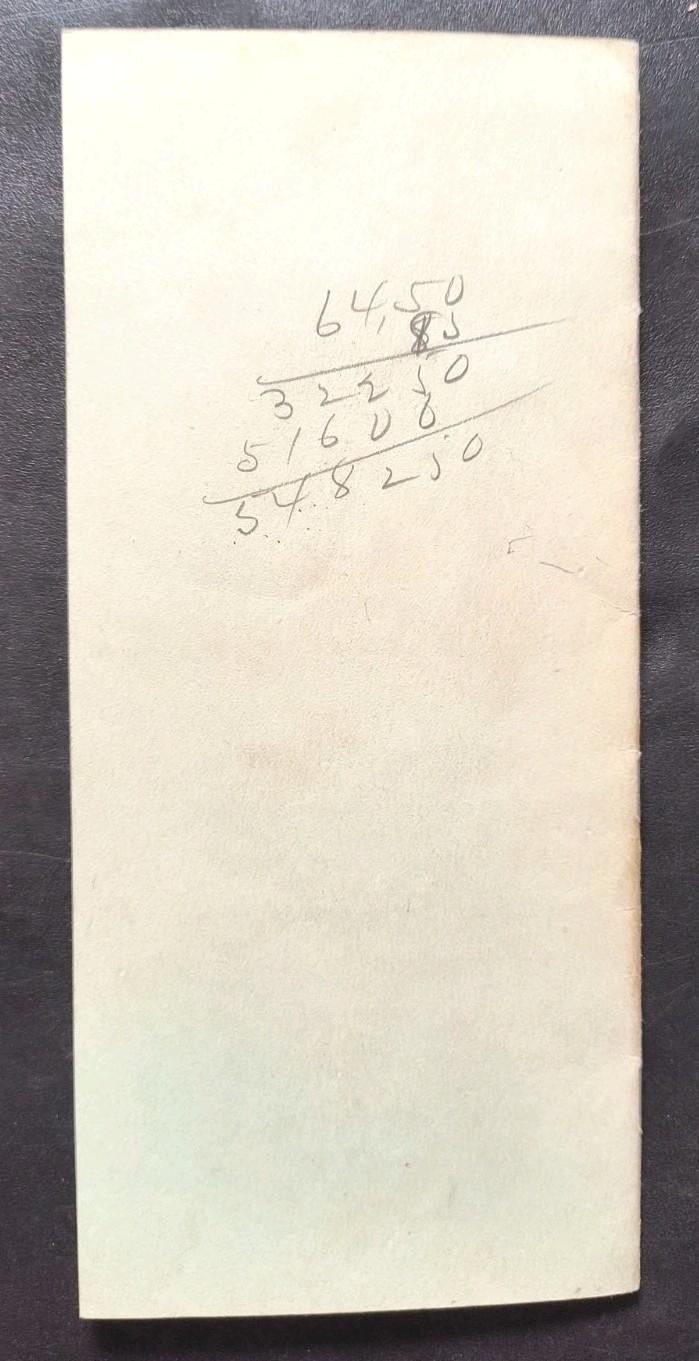 64,50
85
32250
51608
548250